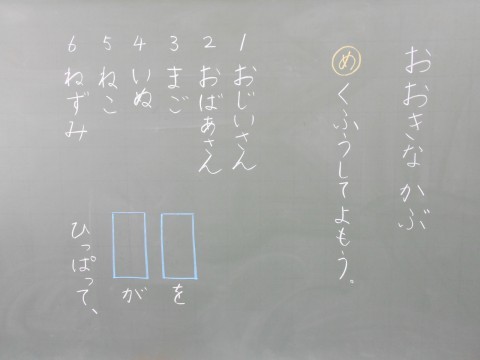 おおきなかぶ
め くふうしてよもう。
1 おじいさん
2 おばあさん
3 まご
4 いぬ
5 ねこ
6 ねずみ
を
が
ひっぱって、